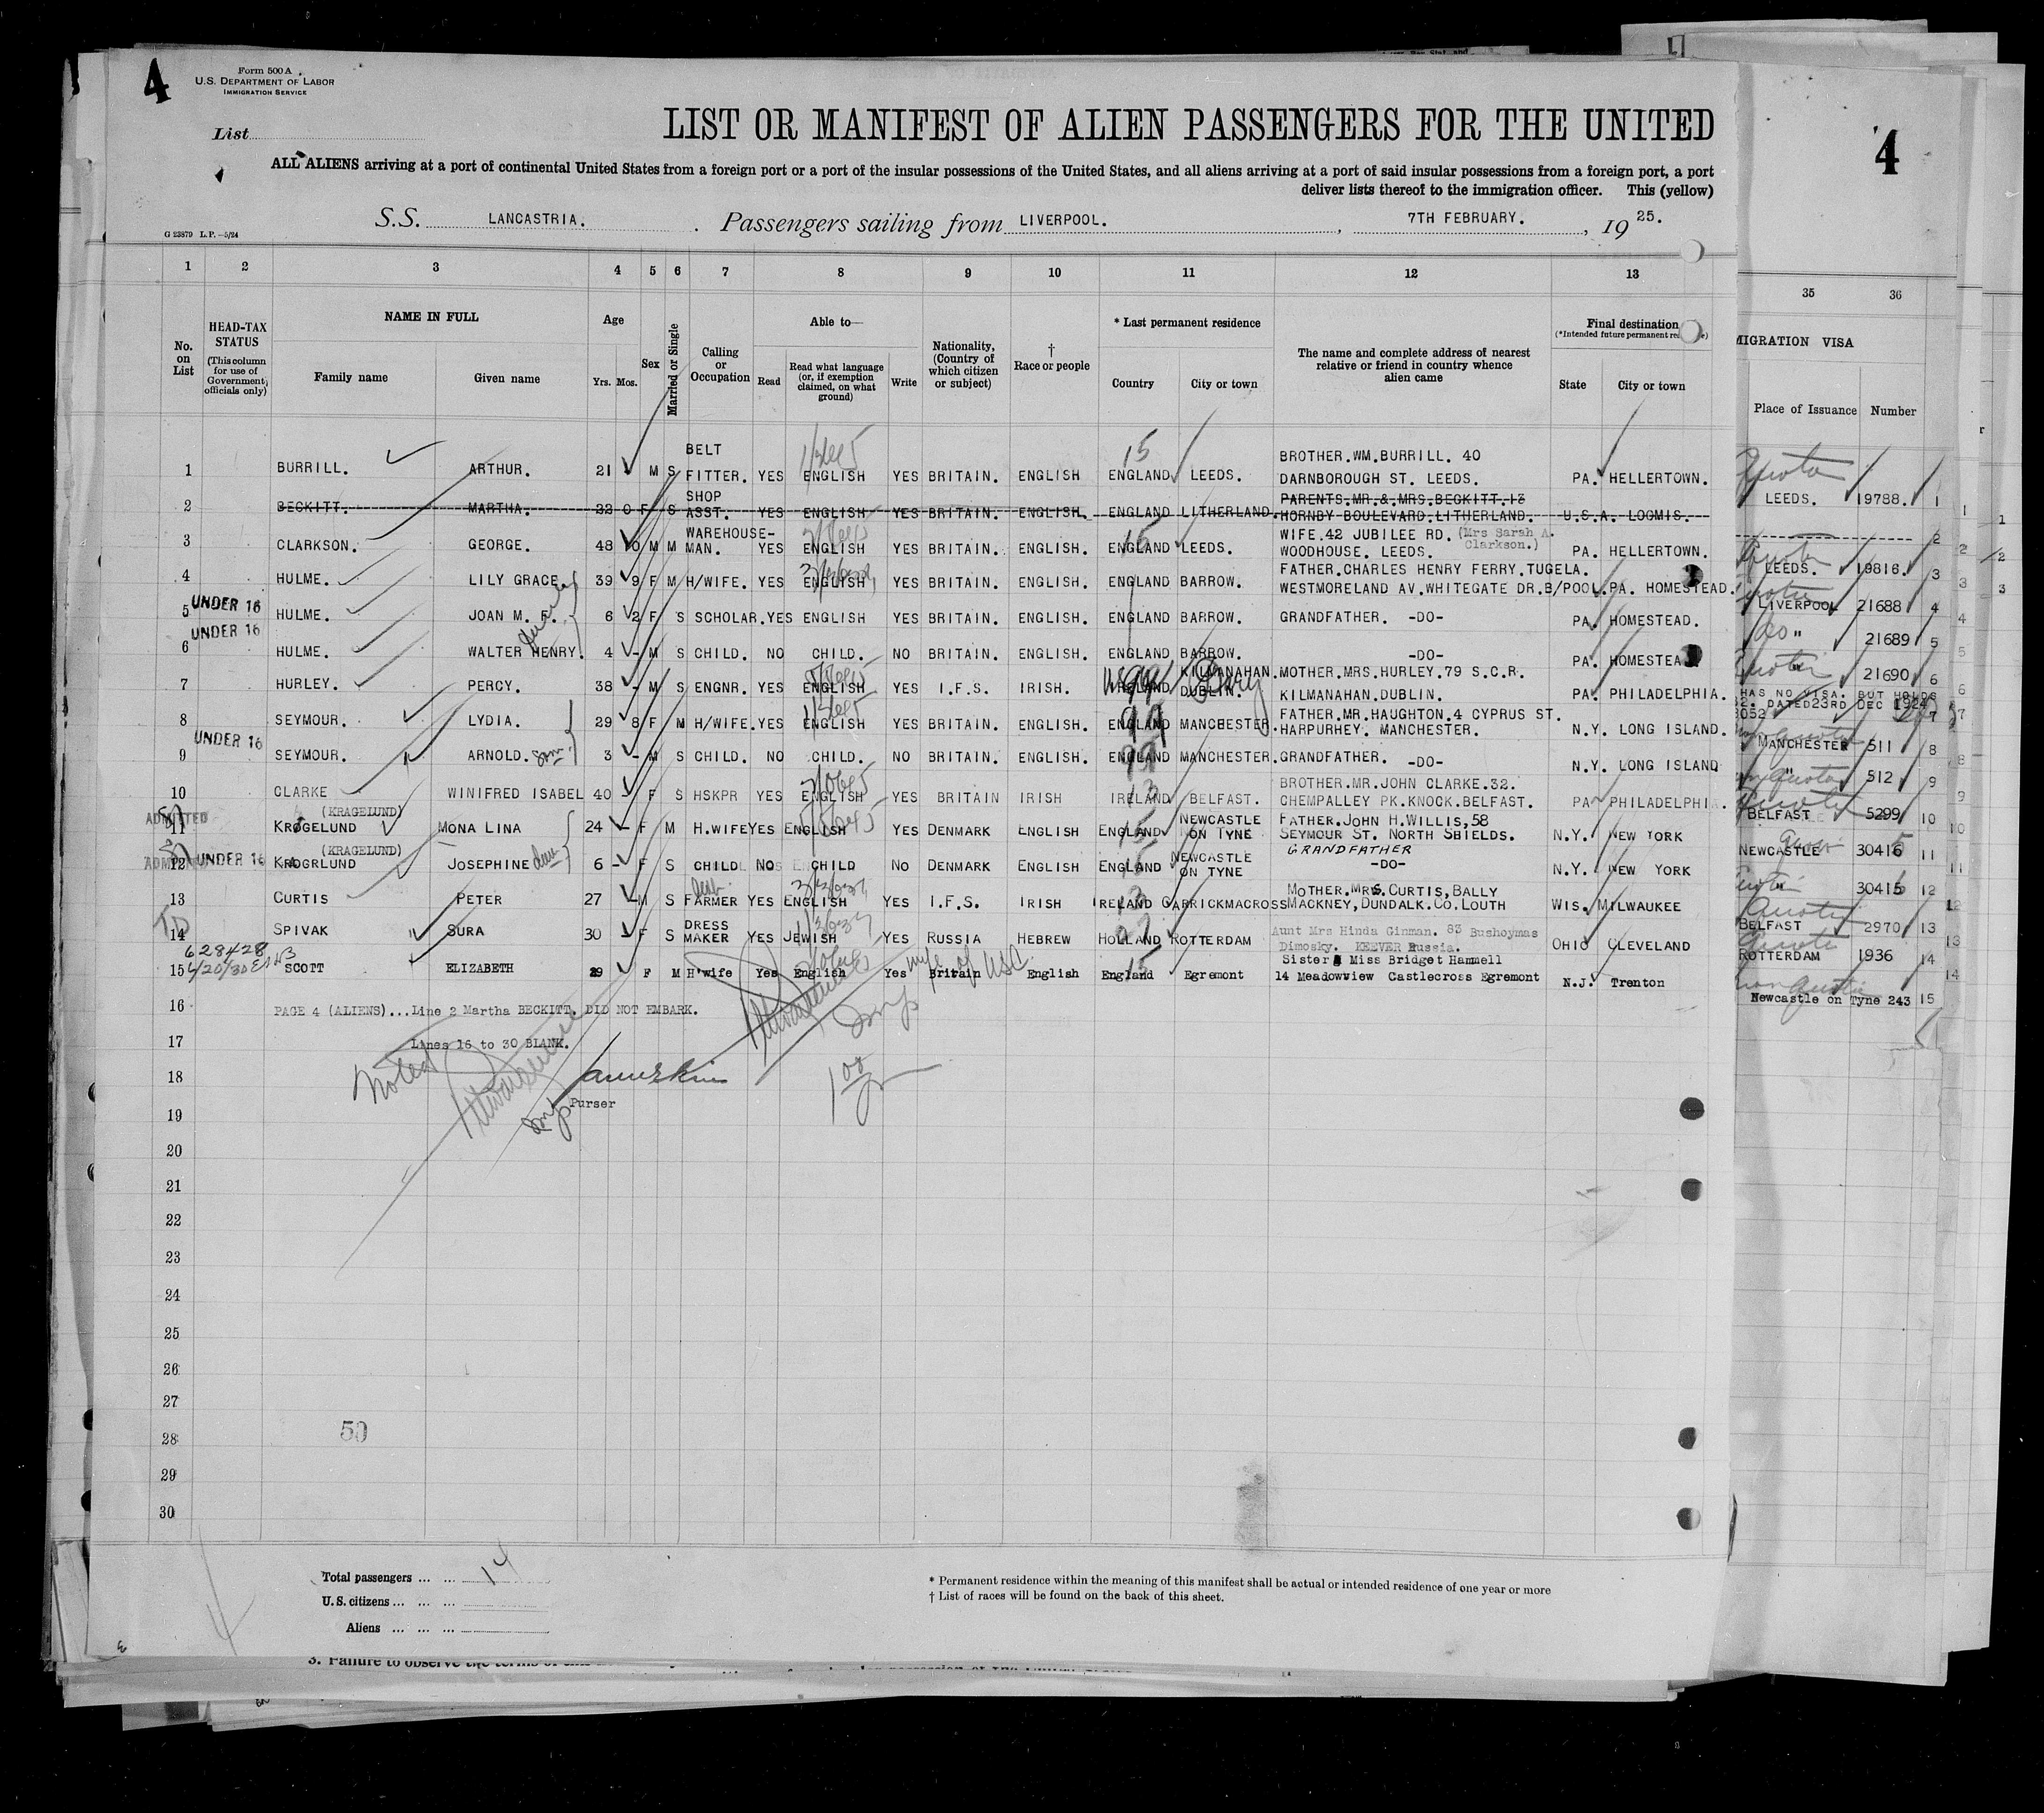 4
Form 500 A
U.S. DEPARTMENT OF LABOR
IMMIGRATION SERVICE
List
LIST OR MANIFEST OF ALIEN PASSENGERS FOR THE UNITED
4
ALL ALIENS arriving at a port of continental United States from a foreign port or a port of the insular possessions of the United States, and all aliens arriving at a port of said insular possessions from a foreign port, a port
deliver lists thereof to the immigration officer. This (yellow)
S.S. LANCASTRIA. Passengers sailing from LIVERPOOL. , 7TH FEBRUARY. , 19 25.
G 23879 L.P.—5/24
1 2 3 4 5 6 7 8 9 10 11 12 13 35 36
No. on List
HEAD-TAX STATUS
(This column for use of Government officials only)
NAME IN FULL
Family name Given name
Age
Yrs. Mos.
Sex
Married or Single
Calling or Occupation
Able to—
Read
Read what language (or, if exemption claimed, on what ground)
Write
Nationality, (Country of which citizen or subject)
† Race or people
* Last permanent residence
Country City or town
The name and complete address of nearest relative or friend in country whence alien came
Final destination
State City or town
MIGRATION VISA
Place of Issuance Number
1 BURRILL. ARTHUR. 21 M S BELT FITTER. YES ENGLISH YES BRITAIN. ENGLISH 15 ENGLAND LEEDS. BROTHER.WM.BURRILL. 40 DARNBOROUGH ST. LEEDS. PA. HELLERTOWN. LEEDS. 19788. 1
2 BECKITT. MARTHA. 32 0 F S SHOP ASST. YES ENGLISH YES BRITAIN. ENGLISH. ENGLAND LITHERLAND. PARENTS.MR.& MRS.BECKITT.13 HORNBY BOULEVARD.LITHERLAND. U.S.A. LOOMIS. 2
3 CLARKSON. GEORGE. 48 10 M M WAREHOUSE-MAN. YES ENGLISH YES BRITAIN. ENGLISH. 15 ENGLAND LEEDS. WIFE.42 JUBILEE RD. (Mrs Sarah A. Clarkson.) WOODHOUSE. LEEDS. PA. HELLERTOWN. LEEDS. 19816. 3
4 HULME. LILY GRACE 39 9 F M H/WIFE. YES ENGLISH YES BRITAIN. ENGLISH. ENGLAND BARROW. FATHER.CHARLES HENRY FERRY.TUGELA. WESTMORELAND AV.WHITEGATE DR.B/POOL. PA. HOMESTEAD. LIVERPOOL 21688 4
UNDER 16
5 HULME. JOAN M. F. 6 2 F S SCHOLAR. YES ENGLISH YES BRITAIN. ENGLISH. ENGLAND BARROW. GRANDFATHER. -DO- PA. HOMESTEAD. " 21689 5
UNDER 16
6 HULME. WALTER HENRY. 4 - M S CHILD. NO CHILD. NO BRITAIN. ENGLISH. ENGLAND BARROW. -DO- PA. HOMESTEAD. " 21690 6
7 HURLEY. PERCY. 38 - M S ENGNR. YES ENGLISH YES I.F.S. IRISH. IRELAND KILMANAHAN. DUBLIN. MOTHER.MRS.HURLEY.79 S.C.R. KILMANAHAN.DUBLIN. PA. PHILADELPHIA. HAS NO VISA. BUT HOLDS DATED 23RD DEC 1924 7
8 SEYMOUR. LYDIA. 29 8 F M H/WIFE. YES ENGLISH YES BRITAIN. ENGLISH. ENGLAND MANCHESTER. FATHER.MR.HAUGHTON.4 CYPRUS ST. HARPURHEY. MANCHESTER. N.Y. LONG ISLAND. MANCHESTER 511 8
UNDER 16
9 SEYMOUR. ARNOLD. son 3 - M S CHILD. NO CHILD. NO BRITAIN. ENGLISH. ENGLAND MANCHESTER. GRANDFATHER. -DO- N.Y. LONG ISLAND " 512 9
10 CLARKE WINIFRED ISABEL 40 - F S HSKPR YES ENGLISH YES BRITAIN IRISH IRELAND BELFAST. BROTHER.MR.JOHN CLARKE.32. CHEMPALLEY PK.KNOCK.BELFAST. PA PHILADELPHIA. BELFAST 5299 10
(KRAGELUND)
ADMITTED
11 KROGELUND MONA LINA 24 - F M H.WIFE YES ENGLISH YES DENMARK ENGLISH ENGLAND NEWCASTLE ON TYNE FATHER.JOHN H.WILLIS,58 SEYMOUR ST. NORTH SHIELDS. N.Y. NEW YORK NEWCASTLE 30416 11
(KRAGELUND)
ADMITTED UNDER 16
12 KROGRLUND JOSEPHINE 6 - F S CHILD NO CHILD NO DENMARK ENGLISH ENGLAND NEWCASTLE ON TYNE GRANDFATHER -DO- N.Y. NEW YORK " 30415 12
13 CURTIS PETER 27 M S FARMER YES ENGLISH YES I.F.S. IRISH IRELAND CARRICKMACROSS MOTHER.MRS.CURTIS, BALLY MACKNEY, DUNDALK.CO.LOUTH WIS. MILWAUKEE BELFAST 2970 13
14 SPIVAK SURA 30 F S DRESS MAKER YES JEWISH YES RUSSIA HEBREW HOLLAND ROTTERDAM Aunt Mrs Hinda Ginman. 83 Bushoymas Dimosky. KEEVER Russia. OHIO CLEVELAND ROTTERDAM 1936 14
628428
4/20/30
15 SCOTT ELIZABETH 29 F M H'wife Yes English Yes Britain wife of USC English 15 England Egremont Sister Miss Bridget Hammell 14 Meadowview Castlecross Egremont N.J. Trenton Newcastle on Tyne 243 15
16 PAGE 4 (ALIENS)...Line 2 Martha BECKITT. DID NOT EMBARK.
17 Lines 16 to 30 BLANK.
Noted
18
Purser
19
20
21
22
23
24
25
26
27
28 50
29
30
Total passengers ... ... 14
U.S. citizens ... ... ...
Aliens ... ... ...
* Permanent residence within the meaning of this manifest shall be actual or intended residence of one year or more
† List of races will be found on the back of this sheet.
3. Failure to observe the terms of